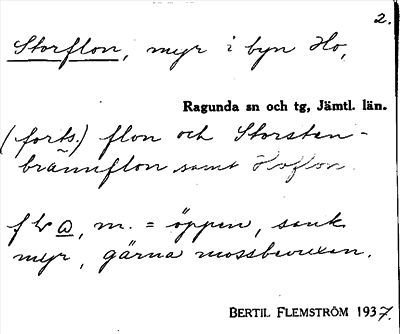 2.
Storflon, myr i byn Ho,
Ragunda sn och tg, Jämtl. län.
(forts.) flon och Storsten-
brännflon samt Hoflon.
m. = öppen, sank
myr, gärna mossbevuxen.
BERTIL FLEMSTRÖM 1937.